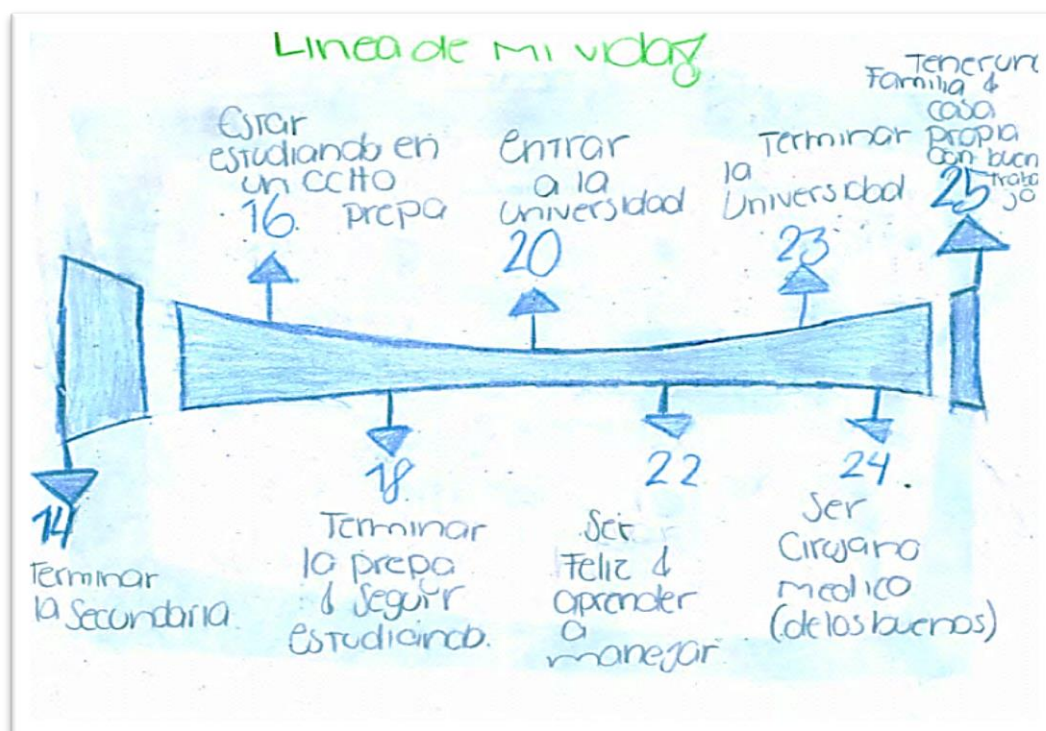 Linea de mi vida
Estar
estudiando en
un CCHO
prepa
16.
Entrar
a la
universidad
20
Terminar
la
Universidad
23
Tener un
Familia &
casa
propia
con buen
trabajo
25
14
Terminar
la Secundaria.
18
Terminar
la prepa
& Seguir
estudiando.
22
Ser
Feliz &
aprender
a
manejar
24.
Ser
Cirujano
medico
(de los buenos)